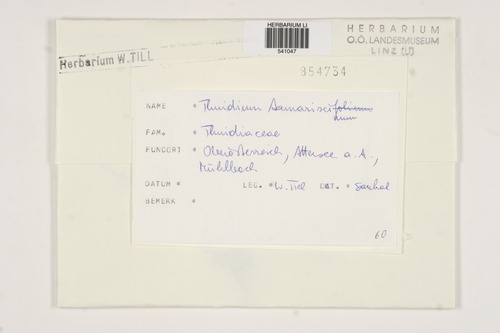 HERBARIUM LI
541047
HERBARIUM
O.Ö. LANDESMUSEUM
LINZ (LI)
Herbarium W. TILL
854734
NAME * Thuidium tamarisci folium
num
FAM. * Thuidiaceae
FUNDORT * Oberösterreich, Attersee a. A.,
Mühlbach
DATUM * LEG. * W. Till DET. *
BEMERK *
60